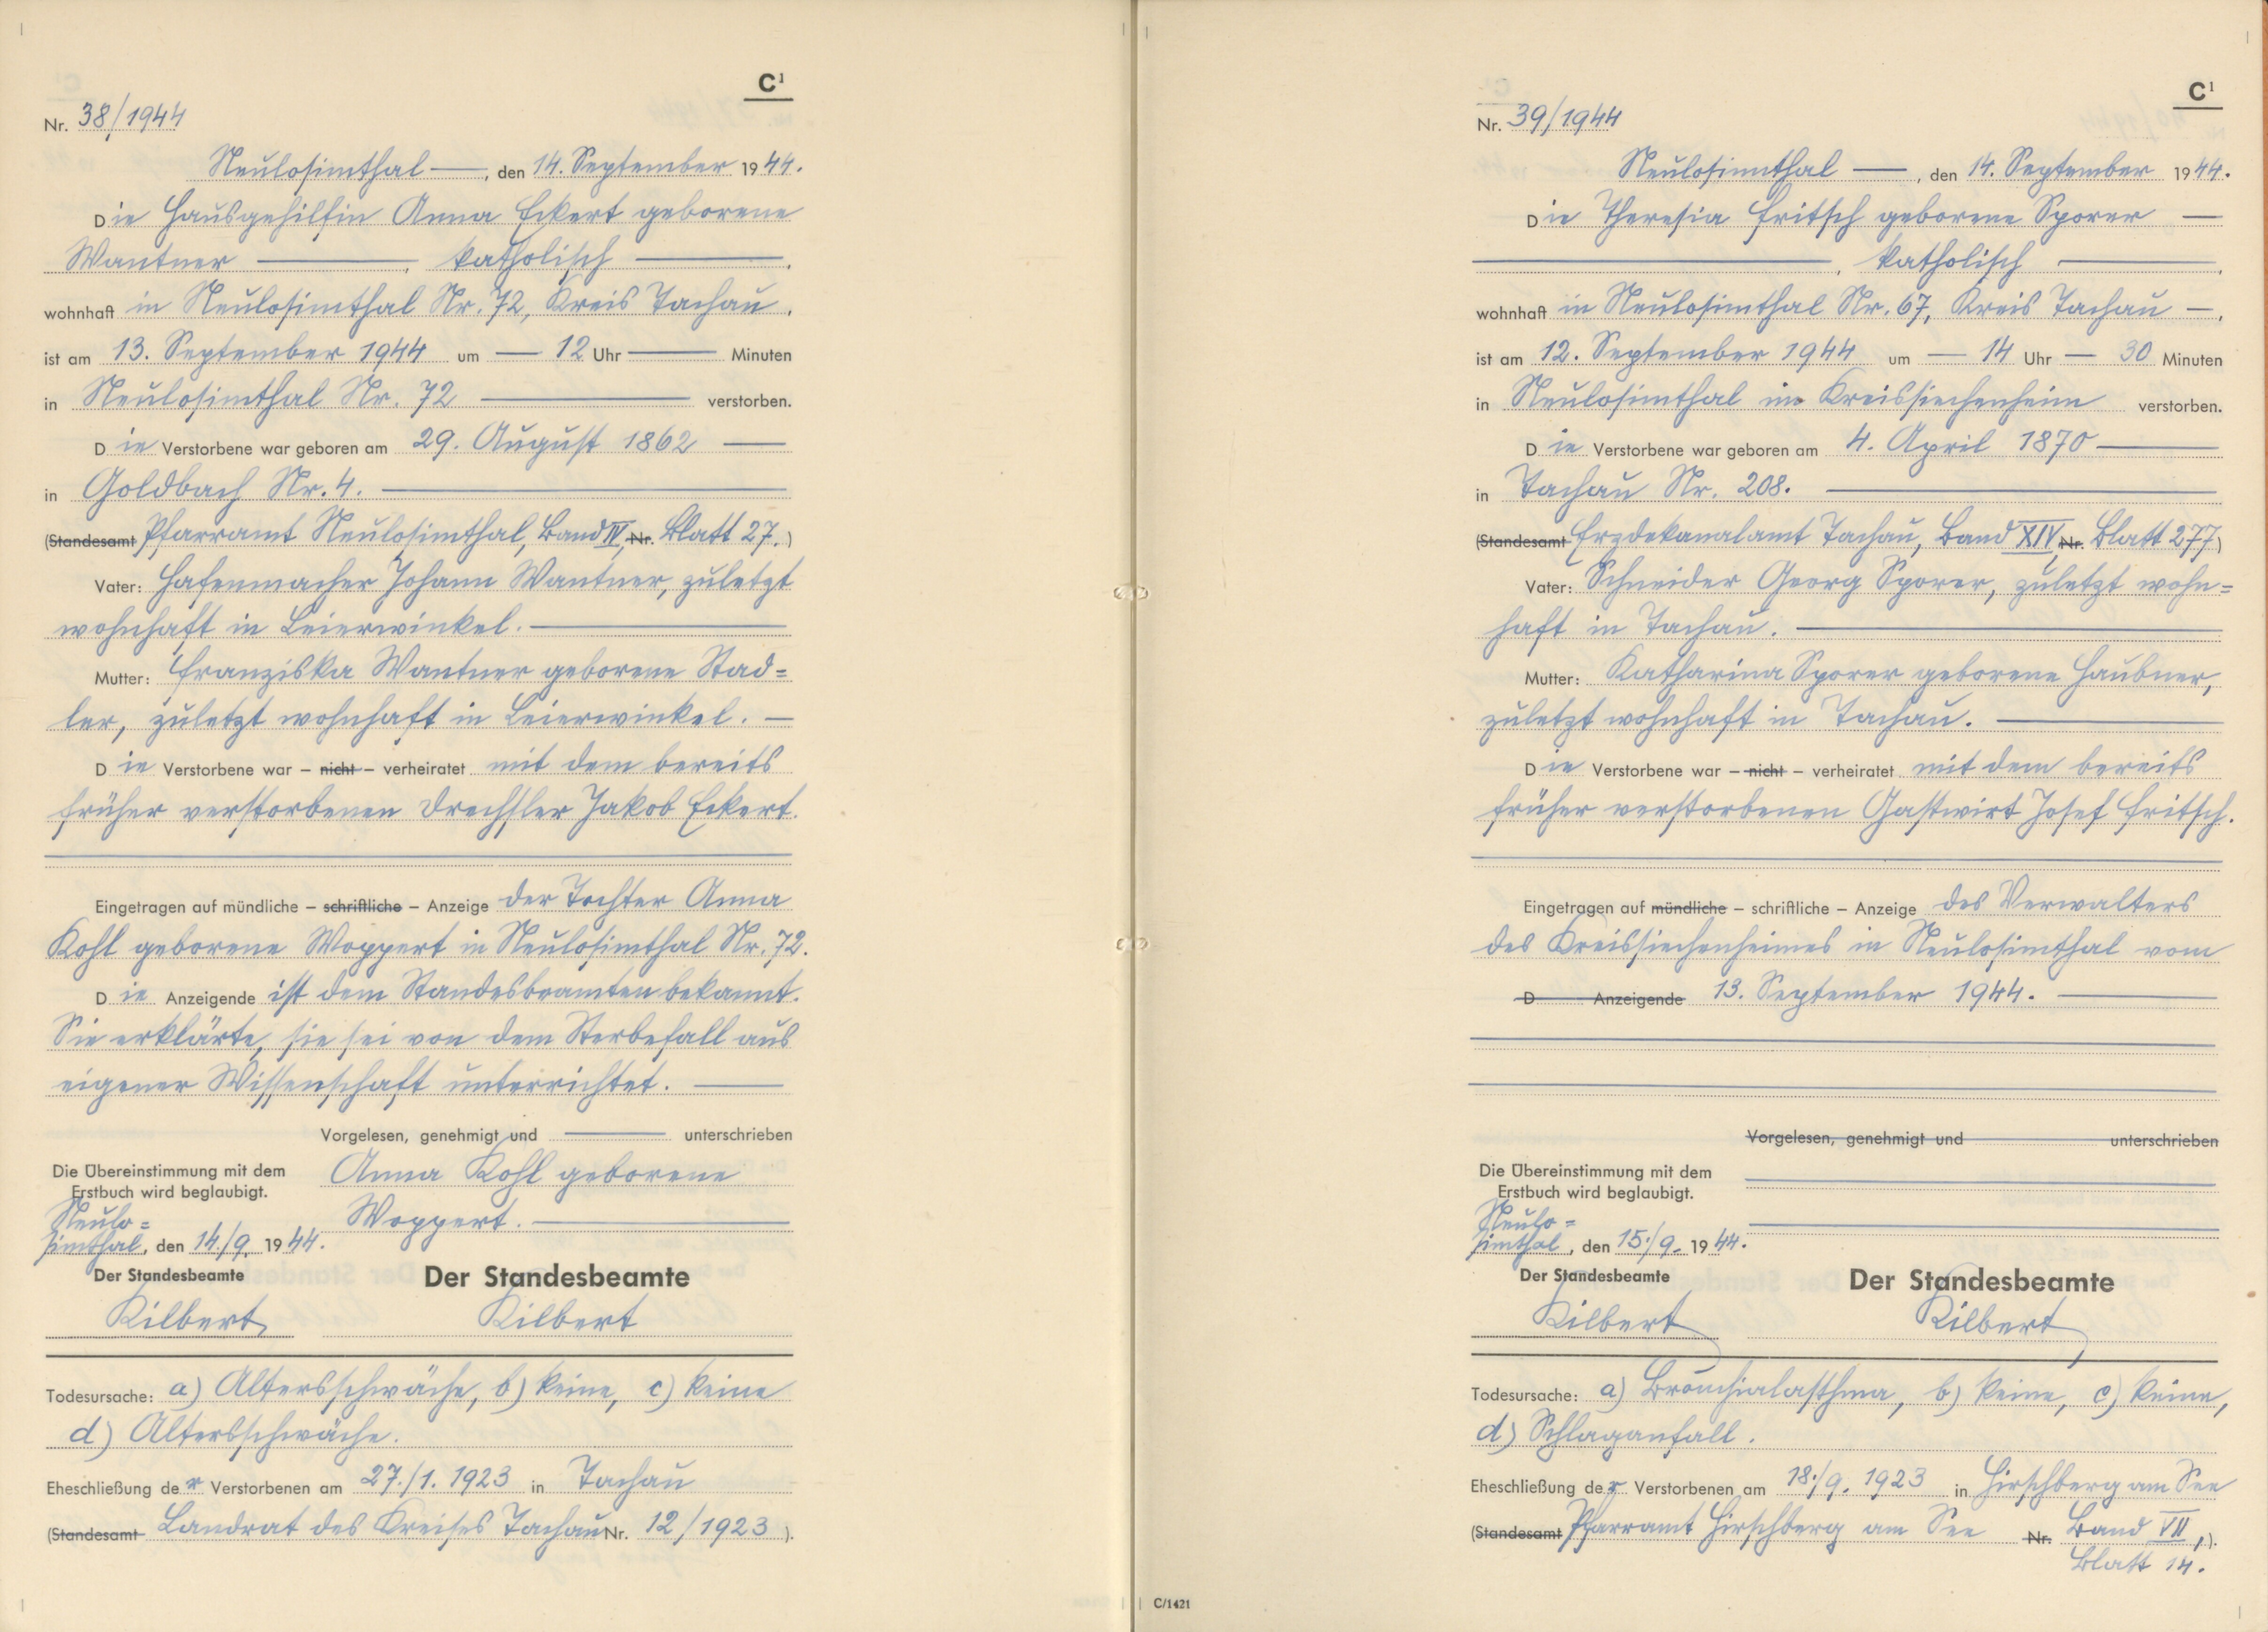 C¹
Nr. 38/1944
Neulosimthal —, den 14. September 1944.
Die Hausgehilfin Anna Eckert geborene
Wantner —, katholisch —,
wohnhaft in Neulosimthal Nr. 72, Kreis Tachau,
ist am 13. September 1944 um — 12 Uhr — Minuten
in Neulosimthal Nr. 72 — verstorben.
Die Verstorbene war geboren am 29. August 1862 —
in Goldbach Nr. 4. —
(Standesamt Pfarramt Neulosimthal, Band IV, Nr. Blatt 27.)
Vater: Hafenmacher Johann Wantner, zuletzt
wohnhaft in Leierwinkel. —
Mutter: Franziska Wantner geborene Stad=
ler, zuletzt wohnhaft in Leierwinkel. —
Die Verstorbene war – nicht – verheiratet mit dem bereits
früher verstorbenen Drechsler Jakob Eckert.
Eingetragen auf mündliche – schriftliche – Anzeige der Tochter Anna
Kohl geborene Woppert in Neulosimthal Nr. 72.
Die Anzeigende ist dem Standesbeamten bekannt.
Sie erklärte, sie sei von dem Sterbefall aus
eigener Wissenschaft unterrichtet. —
Vorgelesen, genehmigt und — unterschrieben
Die Übereinstimmung mit dem
Erstbuch wird beglaubigt.
Anna Kohl geborene
Woppert. —
Neulo=
simthal, den 14./9. 1944.
Der Standesbeamte
Kilbert
Der Standesbeamte
Kilbert
Todesursache: a) Altersschwäche, b) keine, c) keine
d) Altersschwäche.
Eheschließung der Verstorbenen am 27./1. 1923 in Tachau
(Standesamt Landrat des Kreises Tachau Nr. 12/1923).
C¹
Nr. 39/1944
Neulosimthal —, den 14. September 1944.
Die Theresia Fritsch geborene Sporer —
—, katholisch —,
wohnhaft in Neulosimthal Nr. 67, Kreis Tachau —,
ist am 12. September 1944 um — 14 Uhr — 30 Minuten
in Neulosimthal im Kreissiechenheim verstorben.
Die Verstorbene war geboren am 4. April 1870 —
in Tachau Nr. 208. —
(Standesamt Erzdekanalamt Tachau, Band XIV, Nr. Blatt 277)
Vater: Schneider Georg Sporer, zuletzt wohn=
haft in Tachau. —
Mutter: Katharina Sporer geborene Haubner,
zuletzt wohnhaft in Tachau. —
Die Verstorbene war – nicht – verheiratet mit dem bereits
früher verstorbenen Gastwirt Josef Fritsch.
Eingetragen auf mündliche – schriftliche – Anzeige des Verwalters
des Kreissiechenheimes in Neulosimthal vom
D Anzeigende 13. September 1944. —
Vorgelesen, genehmigt und unterschrieben
Die Übereinstimmung mit dem
Erstbuch wird beglaubigt.
Neulo=
simthal, den 15./9. 1944.
Der Standesbeamte
Kilbert
Der Standesbeamte
Kilbert
Todesursache: a) Bronchialasthma, b) keine, c) keine,
d) Schlaganfall.
Eheschließung der Verstorbenen am 18./9. 1923 in Hirschberg am See
(Standesamt Pfarramt Hirschberg am See Nr. Band VII,).
Blatt 14.
C/1421